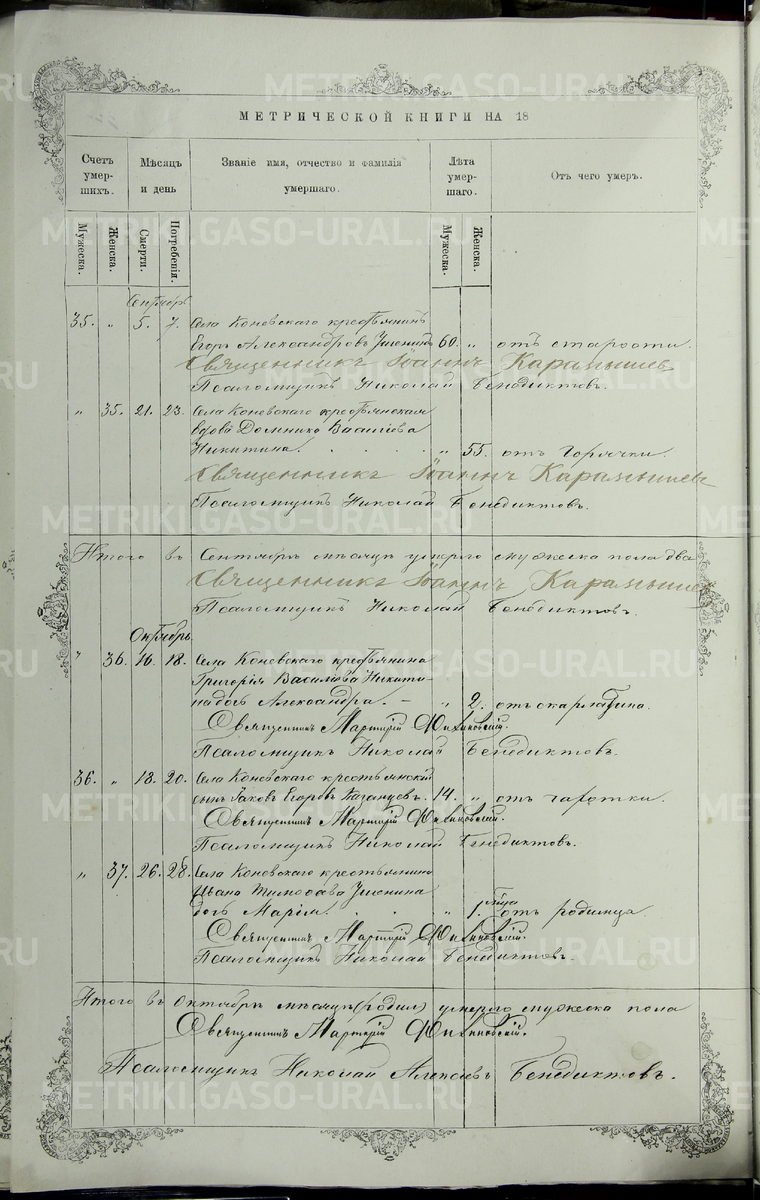 МЕТРИЧЕСКОЙ КНИГИ НА 18
Счетъ умер-шихъ.
Мѣсяцъ и день
Званіе имя, отчество и фамилія умершаго.
Лѣта умер-шаго.
Отъ чего умеръ.
Мужеска.
Женска.
Смерти.
Погребенія.
Мужеска.
Женска.
Сентябрь
35. „ 5. 7. Села Коневскаго крестьянинъ
Егоръ Александровъ 60. „ отъ старости.
Священникъ Іоаннъ Карамышев
Псаломщикъ Николай Бенедиктовъ.
„ 35. 21. 23. Села Коневскаго крестьянская
вдова Домника Васильева
Никитина. „ 55. отъ горячки.
Священникъ Іоаннъ Карамышев
Псаломщикъ Николай Бенедиктовъ.
Итого въ Сентябрѣ мѣсяцѣ умерло мужеска пола два
Священникъ Іоаннъ Карамышев
Псаломщикъ Николай Бенедиктовъ.
Октябрь.
„ 36. 16. 18. Села Коневскаго крестьянина
Григорія Васильева Никити-
на дочь Александра. „ 2. отъ скарлатина.
Священникъ Мартирій
Псаломщикъ Николай Бенедиктовъ.
36. „ 18. 20. Села Коневскаго крестьянскій
сынъ Яковъ Егоровъ Казанцевъ. 14. „ отъ чахотки.
Священникъ Мартирій
Псаломщикъ Николай Бенедиктовъ.
„ 37. 26. 28. Села Коневскаго крестьянина
Ивана
дочь Марія. „ 1. года отъ родимца.
Священникъ Мартирій
Псаломщикъ Николай Бенедиктовъ.
Итого въ Октябрѣ мѣсяцѣ (родил) умерло мужеска пола
Священникъ Мартирій
Псаломщикъ Николай Алексѣевъ Бенедиктовъ.
METRIKI.GASO-URAL.RU